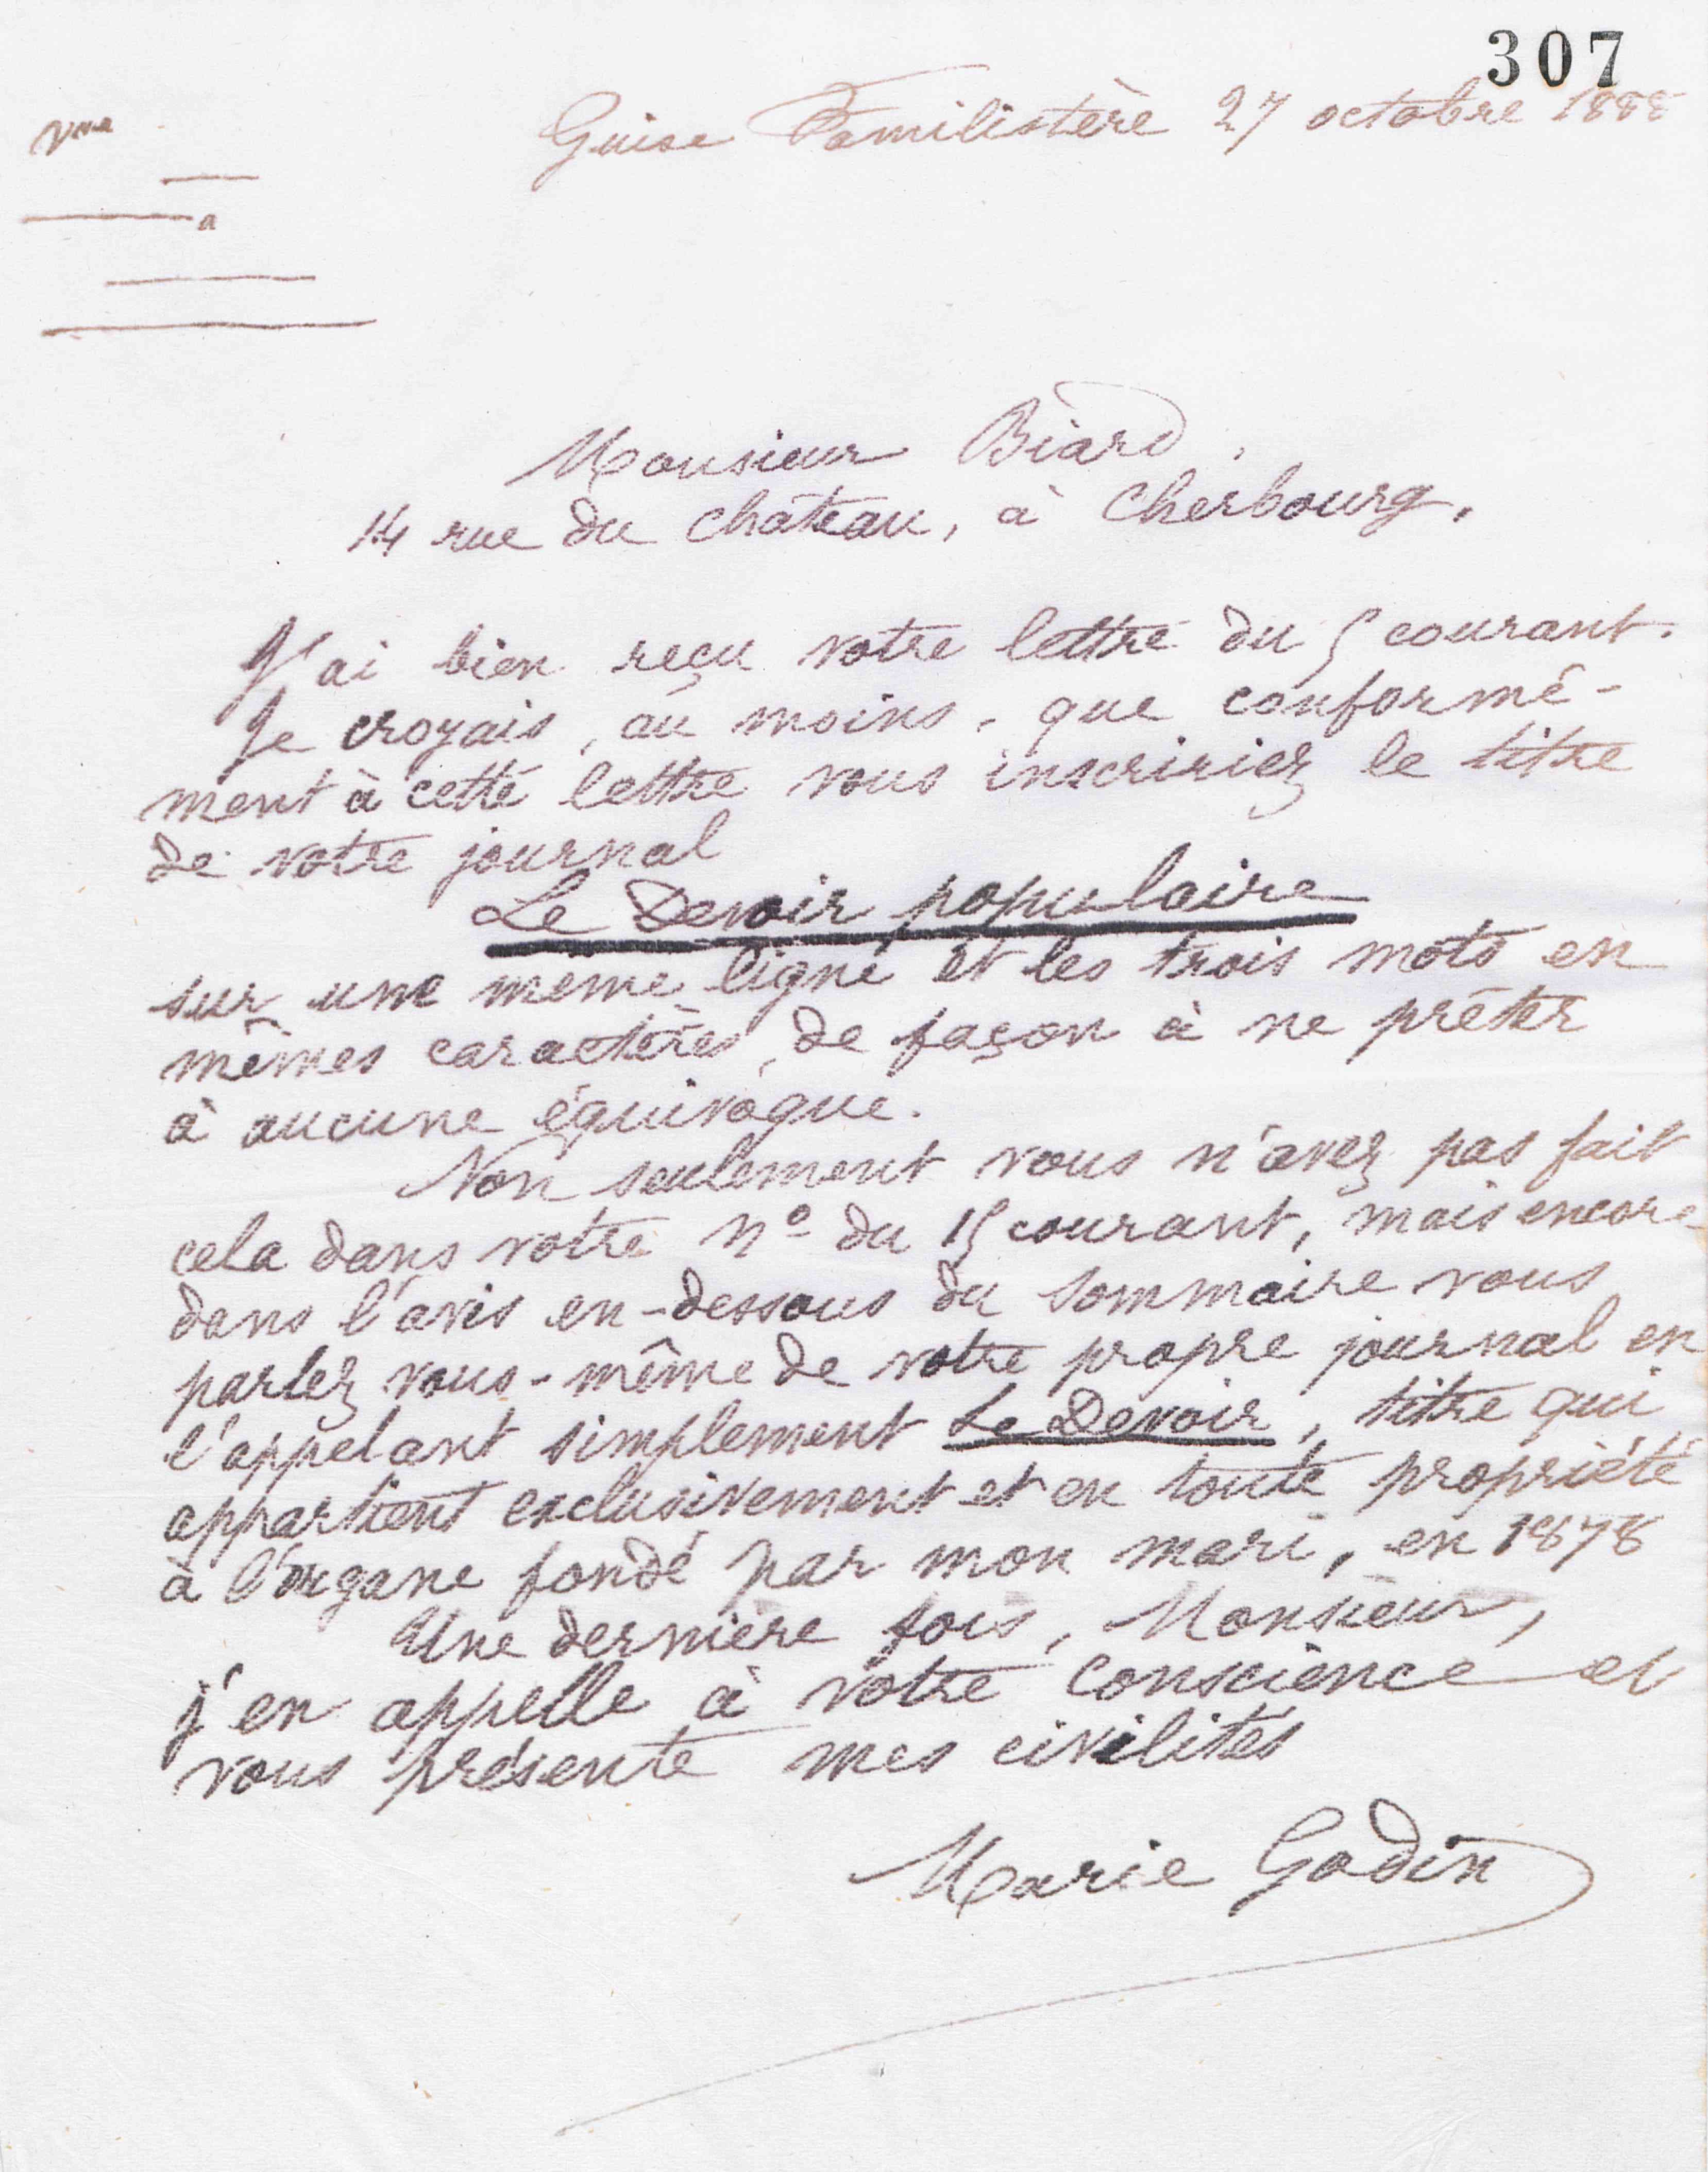 307
Guise Familistère 27 octobre 1888
Vve
a
Monsieur Biard.
14 rue du Château, à Cherbourg.
J'ai bien reçu votre lettre du 5 courant.
Je croyais, au moins, que conformé-
ment à cette lettre vous inscririez le titre
de votre journal
Le Devoir populaire
sur une même ligne et les trois mots en
mêmes caractères, de façon à ne prêter
à aucune équivoque.
Non seulement vous n'avez pas fait
cela dans votre No du 15 courant, mais encore
dans l'avis en-dessous du sommaire vous
parlez vous-même de votre propre journal en
l'appelant simplement Le Devoir, titre qui
appartient exclusivement et en toute propriété
à l'organe fondé par mon mari, en 1878
Une dernière fois, Monsieur,
j'en appelle à votre conscience et
vous présente mes civilités
Marie Godin